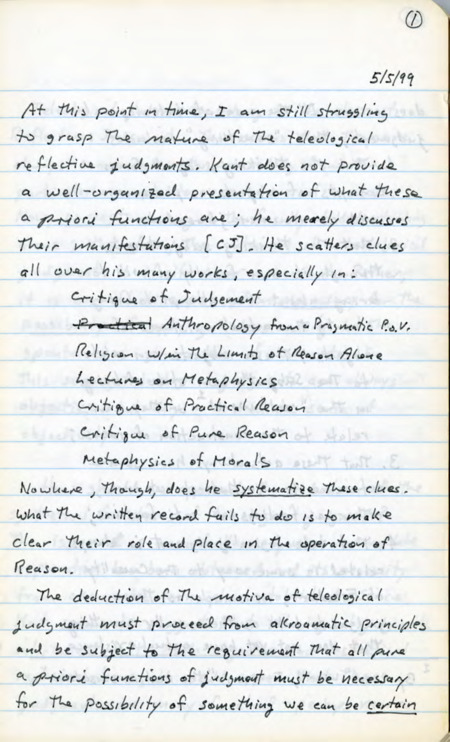 ①
5/5/99
At this point in time, I am still struggling
to grasp the nature of the teleological
reflective judgments. Kant does not provide
a well-organized presentation of what these
a priori functions are; he merely discusses
their manifestations [CJ]. He scatters clues
all over his many works, especially in:
Critique of Judgement
Practical Anthropology from a Pragmatic P.o.V.
Religion w/in the Limits of Reason Alone
Lectures on Metaphysics
Critique of Practical Reason
Critique of Pure Reason
Metaphysics of Morals
Nowhere, though, does he systematize these clues.
What the written record fails to do is to make
clear their role and place in the operation of
Reason.
The deduction of the motiva of teleological
judgment must proceed from akroamatic principles
and be subject to the requirement that all pure
a priori functions of judgment must be necessary
for the possibility of something we can be certain